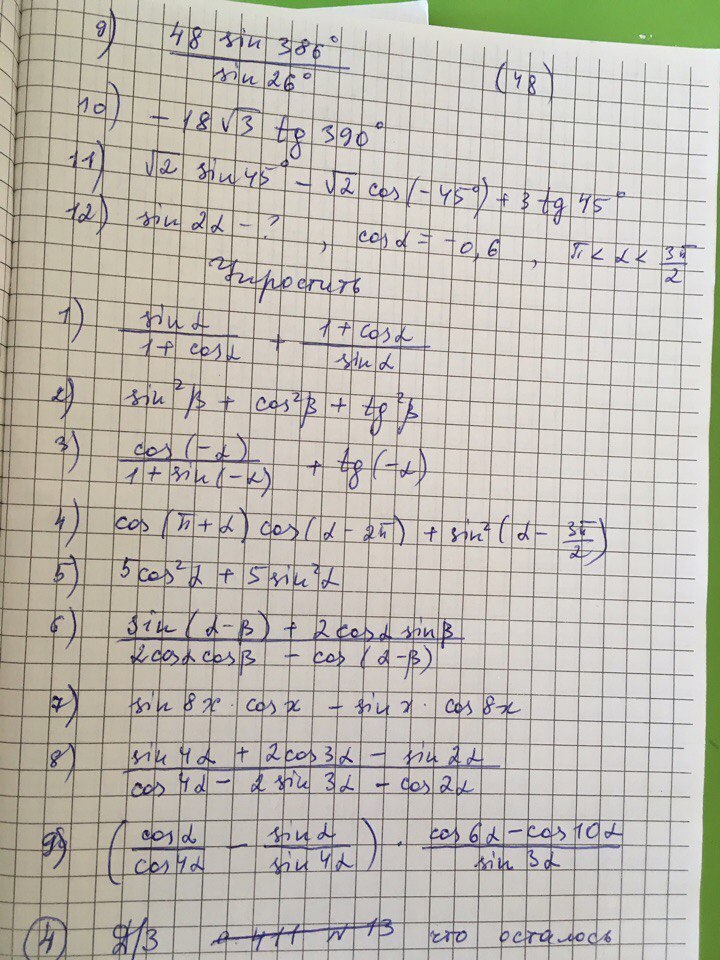 9) 48 sin 386° / sin 26° (48)
10) - 18 √3 tg 390°
11) √2 sin 45° - √2 cos(-45°) + 3 tg 45°
12) sin 2α - ? , cos α = -0,6 , π < α < 3π/2
Упростить
1) sin α / 1 + cos α + 1 + cos α / sin α
2) sin²β + cos²β + tg²β
3) cos(-α) / 1 + sin(-α) + tg(-α)
4) cos(π+α) cos(α-2π) + sin²(α - 3π/2)
5) 5cos²α + 5sin²α
6) sin(α-β) + 2cosα sinβ / 2cosα cosβ - cos(α-β)
7) sin 8x · cos x - sin x · cos 8x
8) sin 4α + 2cos 3α - sin 2α / cos 4α - 2 sin 3α - cos 2α
9) (cos α / cos 4α - sin α / sin 4α) · cos 6α - cos 10α / sin 3α
4 Д/З что осталось